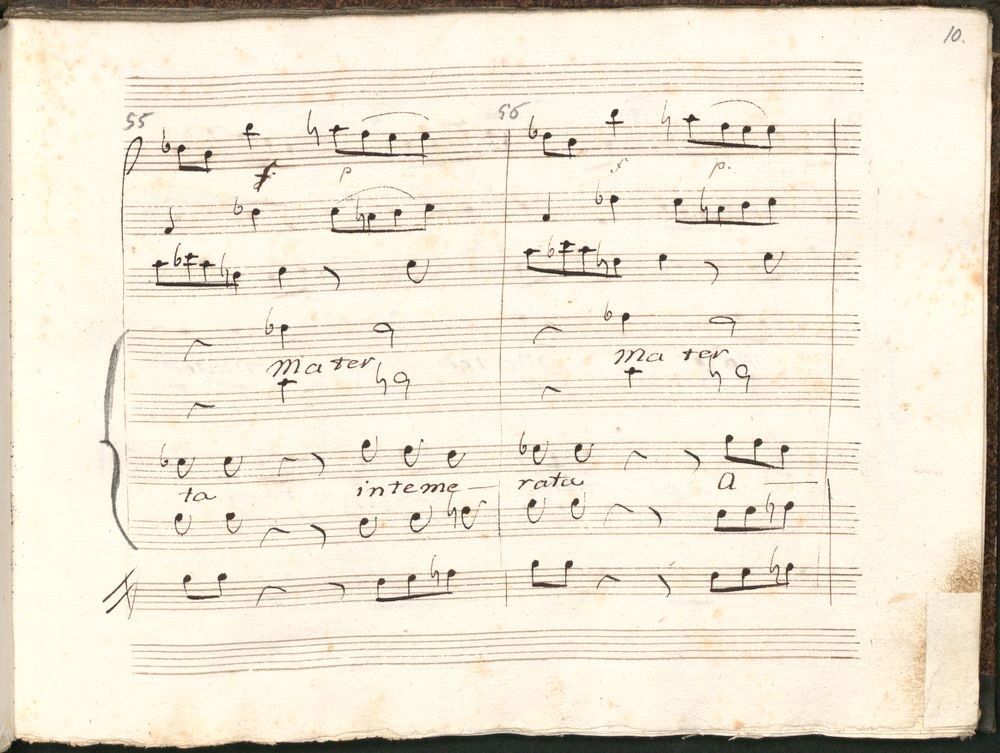 10.
55 56
f p f p.
mater mater
ta inteme- rata a